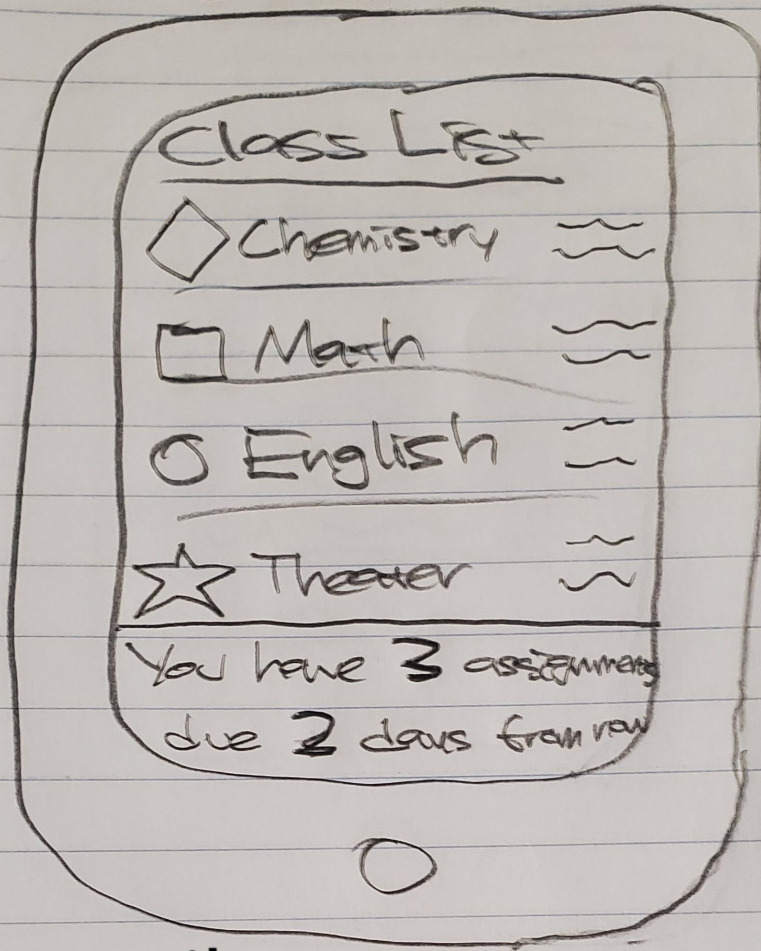 Class List
Chemistry
Math
English
Theater
You have 3 assignments
due 2 days from now